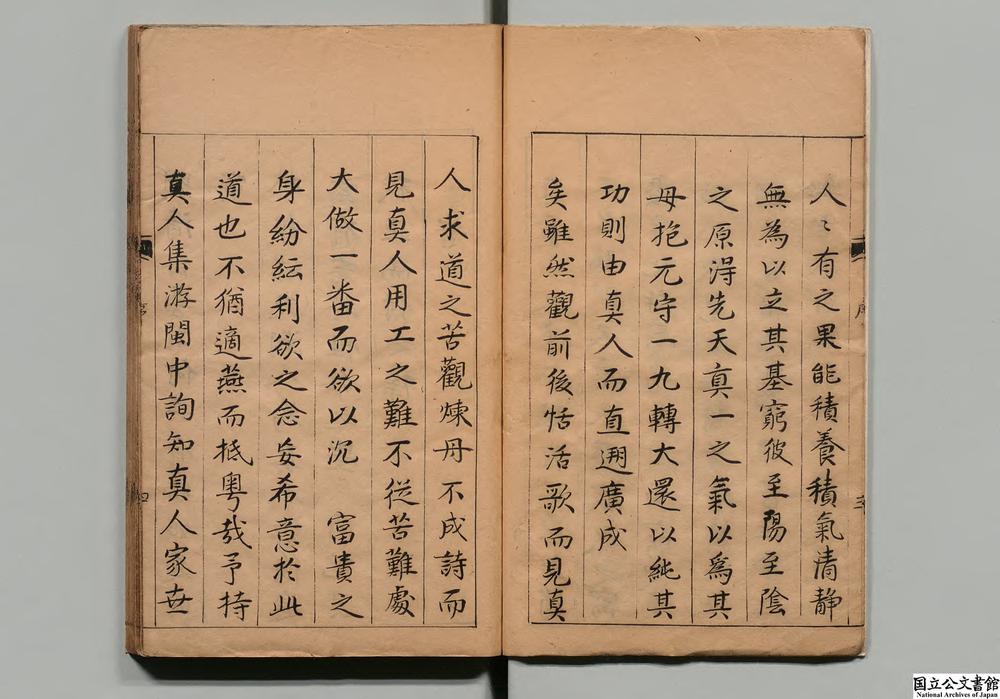 人〻有之果能積養積氣清静
無為以立其基窮彼至陽至陰
之原淂先天真一之氣以為其
母抱元守一九轉大還以純其
功則由真人而直遡廣成
矣雖然觀前後恬活歌而見真
人求道之苦觀煉丹不成詩而
見真人用工之難不從苦難處
大做一番而欲以沉　富貴之
身紛紜利欲之念妄希意於此
道也不猶適燕而抵粤哉予持
真人集游閩中詢知真人家世
序
四
国立公文書館
National Archives of Japan